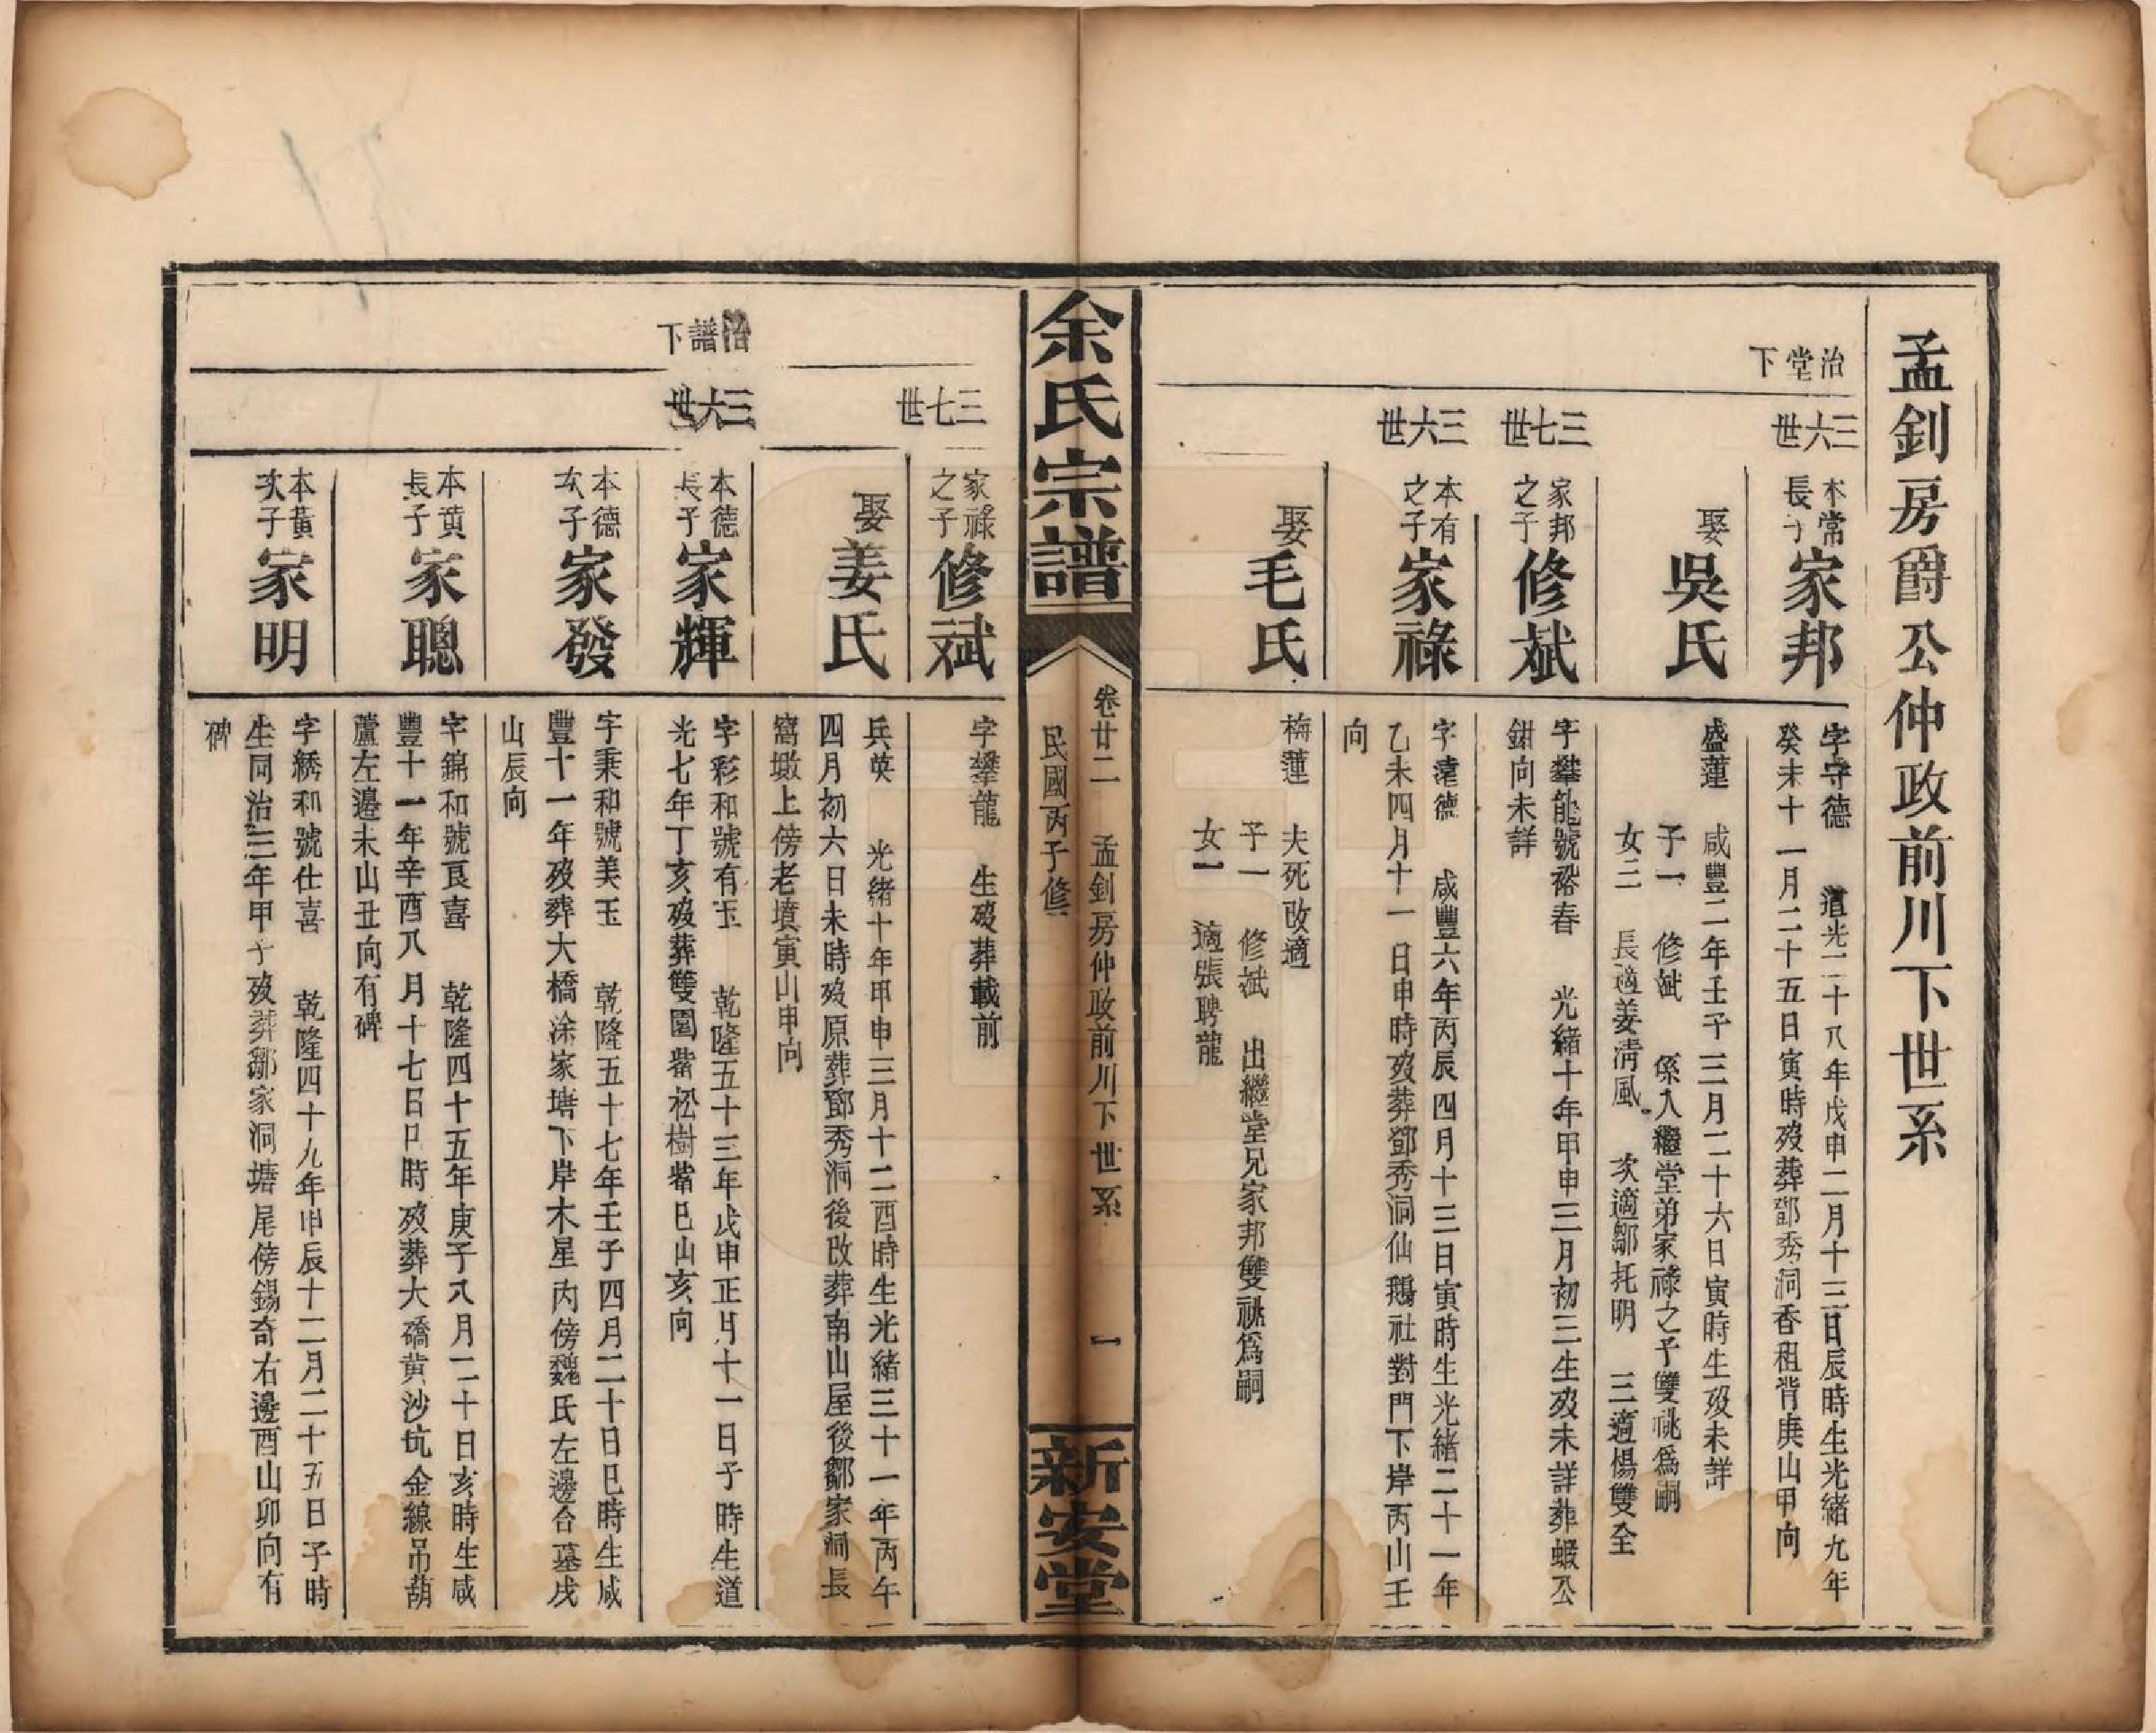 孟釗房爵公仲政前川下世系
治堂下
三六世
本常長子
家邦
字守德　道光二十八年戊申二月十三日辰時生光緒九年
癸未十一月二十五日寅時歿葬鄧秀洞香租背庚山甲向
娶
吳氏
盛蓮　咸豐二年壬子三月二十六日寅時生歿未詳
子一　修斌　係入繼堂弟家祿之子雙祧爲嗣
女三　長適姜清風　次適鄒托明　三適楊雙全
三七世
家邦之子
修斌
字攀龍號裕春　光緒十年甲申三月初三生歿未詳葬蝦公
鉗向未詳
三六世
本有之子
家祿
字達德　咸豐六年丙辰四月十三日寅時生光緒二十一年
乙未四月十一日申時歿葬鄧秀洞仙鵝社對門下岸丙山壬
向
娶
毛氏
梅蓮　夫死改適
子一　修斌　出繼堂兄家邦雙祧爲嗣
女一　適張聘龍
余氏宗譜
卷廿二　孟釗房仲政前川下世系　一
民國丙子修
新安堂
三七世
家祿之子
修斌
字攀龍　生歿葬載前
娶
姜氏
兵英　光緒十年甲申三月十二酉時生光緒三十一年丙午
四月初六日未時歿原葬鄧秀洞後改葬南山屋後鄒家洞長
窩墩上傍老墳寅山申向
治譜下
三六世
本德長子
家輝
字彩和號有玉　乾隆五十三年戊申正月十一日子時生道
光七年丁亥歿葬雙園砦松樹砦巳山亥向
本德次子
家發
字秉和號美玉　乾隆五十七年壬子四月二十日巳時生咸
豐十一年歿葬大橋涂家塘下岸木星丙傍魏氏左邊合墓戌
山辰向
本黃長子
家聰
字錦和號良喜　乾隆四十五年庚子八月二十日亥時生咸
豐十一年辛酉八月十七日時歿葬大礄黃沙坑金線吊葫
蘆左邊未山丑向有碑
本黃次子
家明
字綉和號仕喜　乾隆四十九年甲辰十二月二十五日子時
生同治三年甲子歿葬鄒家洞塘尾傍錫奇右邊酉山卯向有
碑